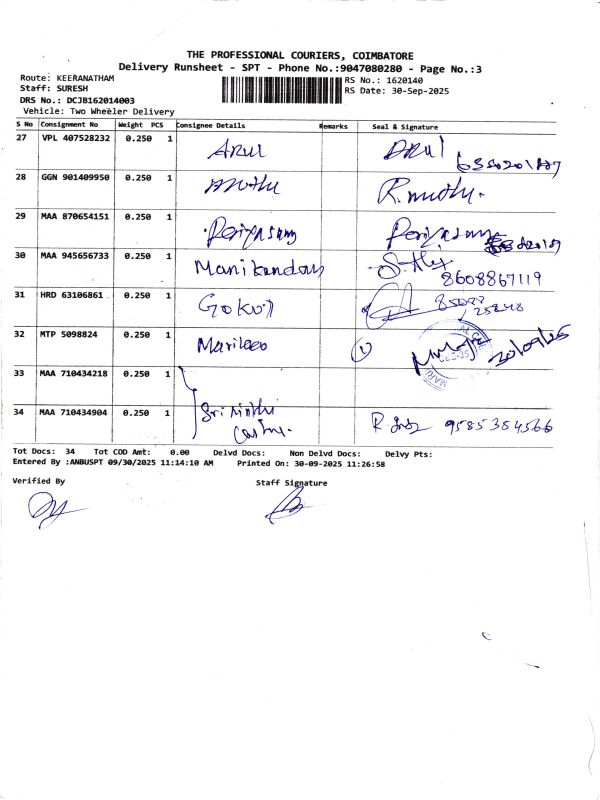 THE PROFESSIONAL COURIERS, COIMBATORE
Delivery Runsheet - SPT - Phone No.:9047080280 - Page No.:3
Route: KEERANATHAM RS No.: 1620140
Staff: SURESH RS Date: 30-Sep-2025
DRS No.: DCJB162014003
Vehicle: Two Wheeler Delivery
S No Consignment No Weight PCS Consignee Details Remarks Seal & Signature
27 VPL 407528232 0.250 1 Arul Arul
28 GGN 901409950 0.250 1 Muthu R.muthu.
29 MAA 870654151 0.250 1 Periyasamy Periyasamy
30 MAA 945656733 0.250 1 Manikandan 8608867119
31 HRD 63106861 0.250 1 Gokul
32 MTP 5098824 0.250 1 30/09/25
33 MAA 710434218 0.250 1
34 MAA 710434904 0.250 1 Sri 9585354566
Tot Docs: 34 Tot COD Amt: 0.00 Delvd Docs: Non Delvd Docs: Delvy Pts:
Entered By :ANBUSPT 09/30/2025 11:14:10 AM Printed On: 30-09-2025 11:26:58
Verified By Staff Signature